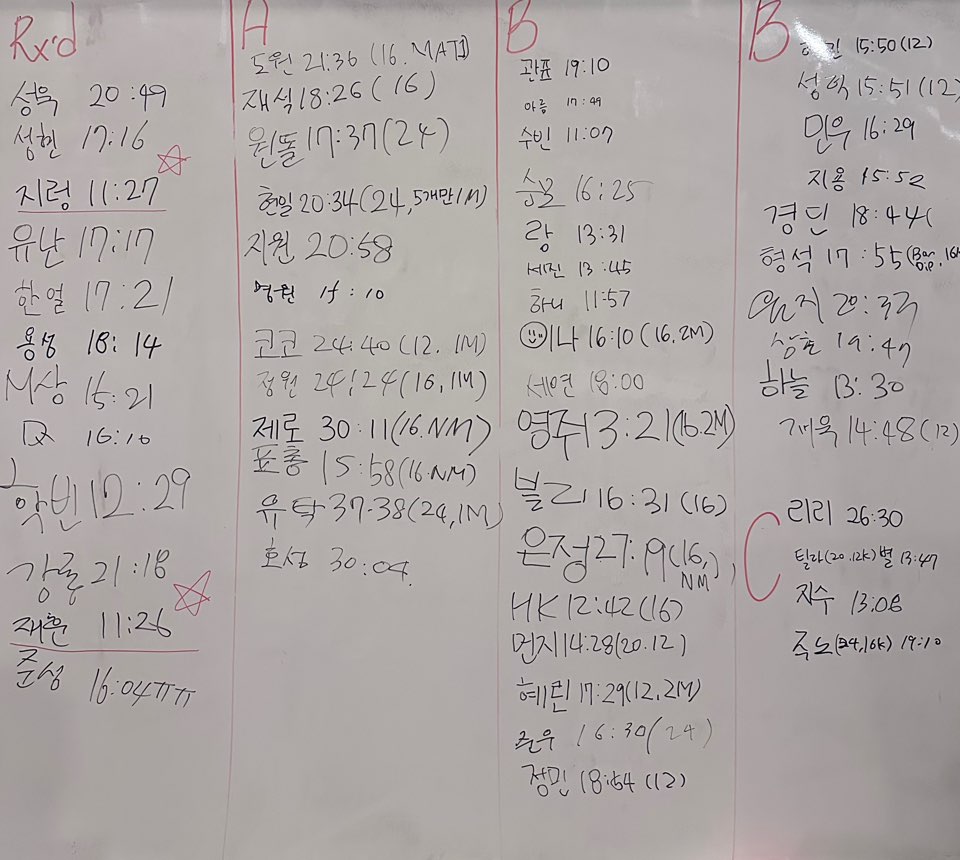 Rx'd
성욱 20:49
성현 17:16
지령 11:27
유난 17:17
한열 17:21
용성 18:14
M상 15:21
16:10
학빈 12:29
강룡 21:18
재훈 11:26
준성 16:04ㅠㅠ
A
도원 21:36 (16.
재식 18:26 (16)
원똘 17:37 (24)
현일 20:34 (24, 5개만 1M)
지원 20:58
영원 15:10
코코 24:40 (12. 1M)
정원 24:24 (16, 1M)
제로 30:11 (16.NM)
표총 15:58 (16.NM)
유탁 37:38 (24, 1M)
호성 30:04.
B
관표 19:10
아름 17:49
수빈 11:07
16:25
랑 13:31
세진 13:45
하니 11:57
이나 16:10 (16.2M)
세연 18:00
영주 13:21 (16.2M)
벌크 16:31 (16)
은정 27:19 (16, NM)
HK 12:42 (16)
먼지 14:28 (20.12)
혜린 17:29 (12.2M)
준우 16:30 (24)
정민 18:54 (12)
B
15:50 (12)
성익 15:51 (12)
민우 16:29
지용 15:52
경민 18:44 (
형석 17:55 (Bar Dip, 16K
20:33
상호 19:47
하늘 13:30
재욱 14:48 (12)
C
리리 26:30
틸라 (20.12K) 별 13:47
지수 13:08
주노 (24, 16K) 19:10